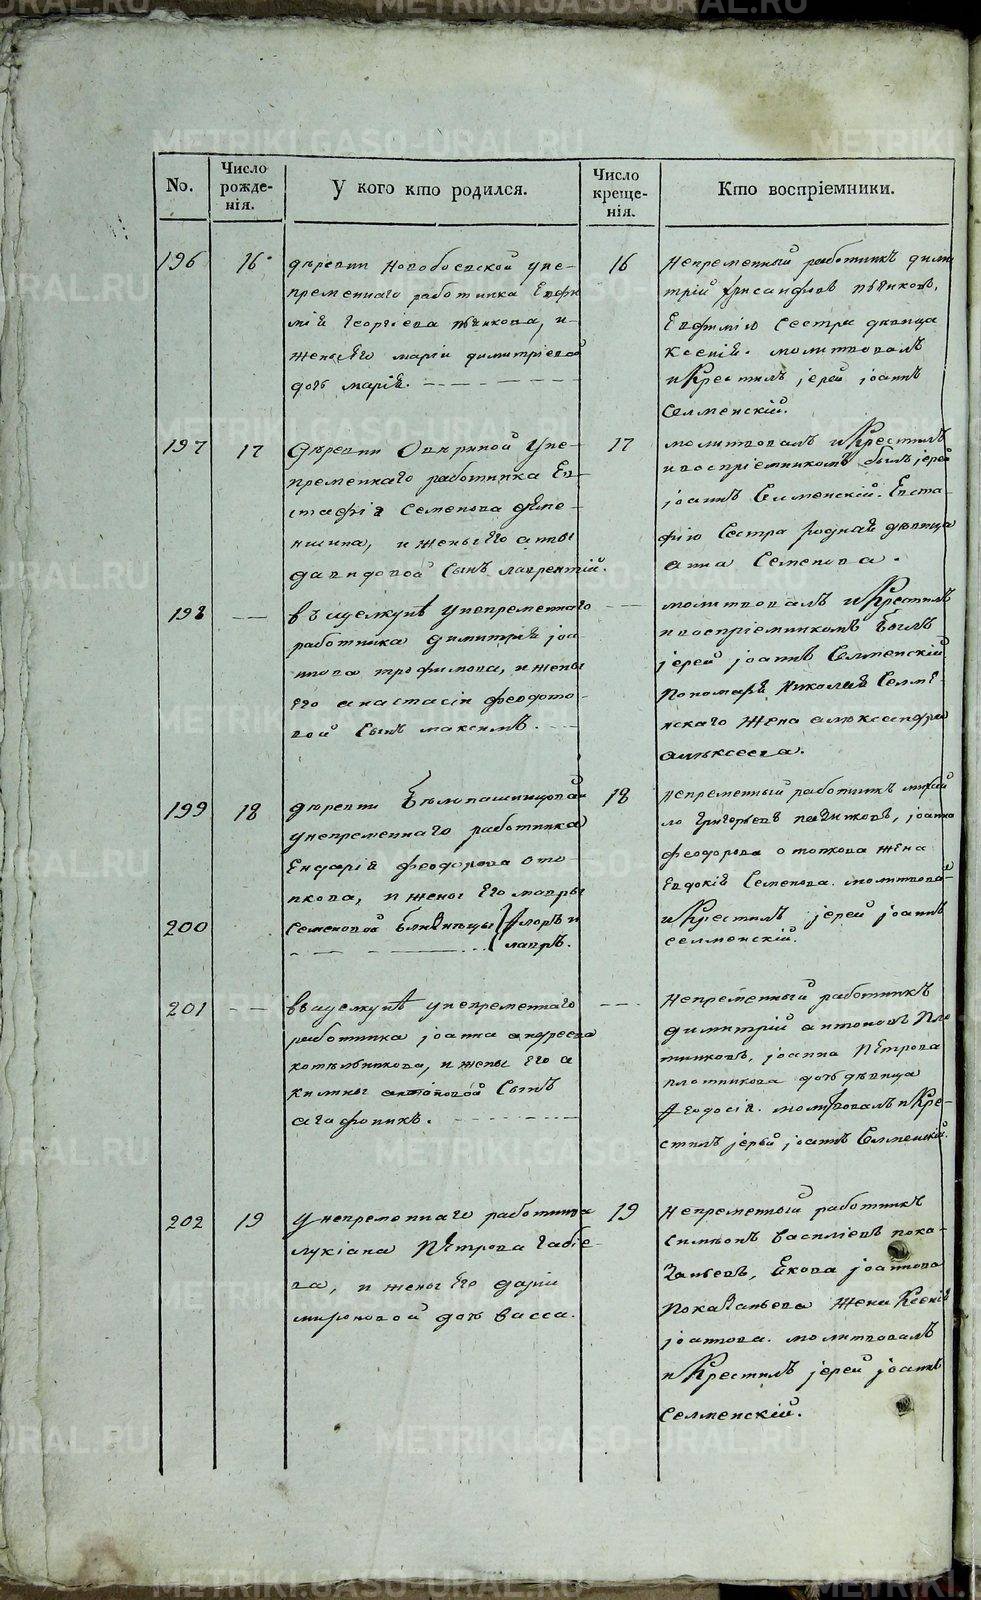 No.
Число рожде-
нія.
У кого кто родился.
Число креще-
нія.
Кто воспріемники.
196
16
деревни Новобоевской уне-
пременнаго работника Евфи
мія Георгіева пьянкова, и
жены Его маріи димитріевой
дочь марія.
16
Непременный работникъ дими
трій пьянковъ,
Евфимію Сестра девица
Ксенія. молитвовалъ
и Крестилъ іерей іоаннъ
Селменскій.
197
17
Деревни уне-
пременнаго работника Ев-
стафія Семенова
и жены Его анны
давидовой Сынъ лаврентій.
17
молитвовалъ и Крестилъ
и воспріемникомъ былъ іерей
іоаннъ Селменскій. Евста-
фію Сестра родная девица
анна Семенова.
198
въ ицелкунѣ унепременнаго
работника димитрія іоа
ннова трофимова, и жены
Его анастасіи феодото-
вой Сынъ максимъ.
молитвовалъ и Крестилъ
и воспріемникомъ былъ
іерей іоаннъ Селменскій
Пономаря Николая Селме
нскаго Жена александра
алексеева.
199
18
деревни
унепременнаго работника
феодорова
и жены Его мавры
18
непременный работникъ михай
ло Григорьевъ іоанна
феодорова жена
Евдокія Семенова. молитвовал
200
Семеновой близнецы флоръ и
лавръ.
и Крестилъ іерей іоаннъ
селменскій.
201
въ ицелкунѣ унепременнаго
работника іоанна андреева
котельникова, и жены Его а
килины антоновой Сынъ
агафоникъ.
Непременный работникъ
димитрій антоновъ Пло
тниковъ, іоанна Петрова
плотникова дочь девица
Феодосія. молитвовалъ и Кре-
стилъ іерей іоаннъ Селменскій.
202
19
унепременнаго работника
лукіана Петрова бабіе-
ва, и жены Его даріи
мироновой дочь васса.
19
Непременный работникъ
Симеонъ василіевъ пока-
іоаннова
Жена Ксенія
іоаннова. молитвовалъ
и Крестилъ іерей іоаннъ
Селменскій.
METRIKI.GASO-URAL.RU